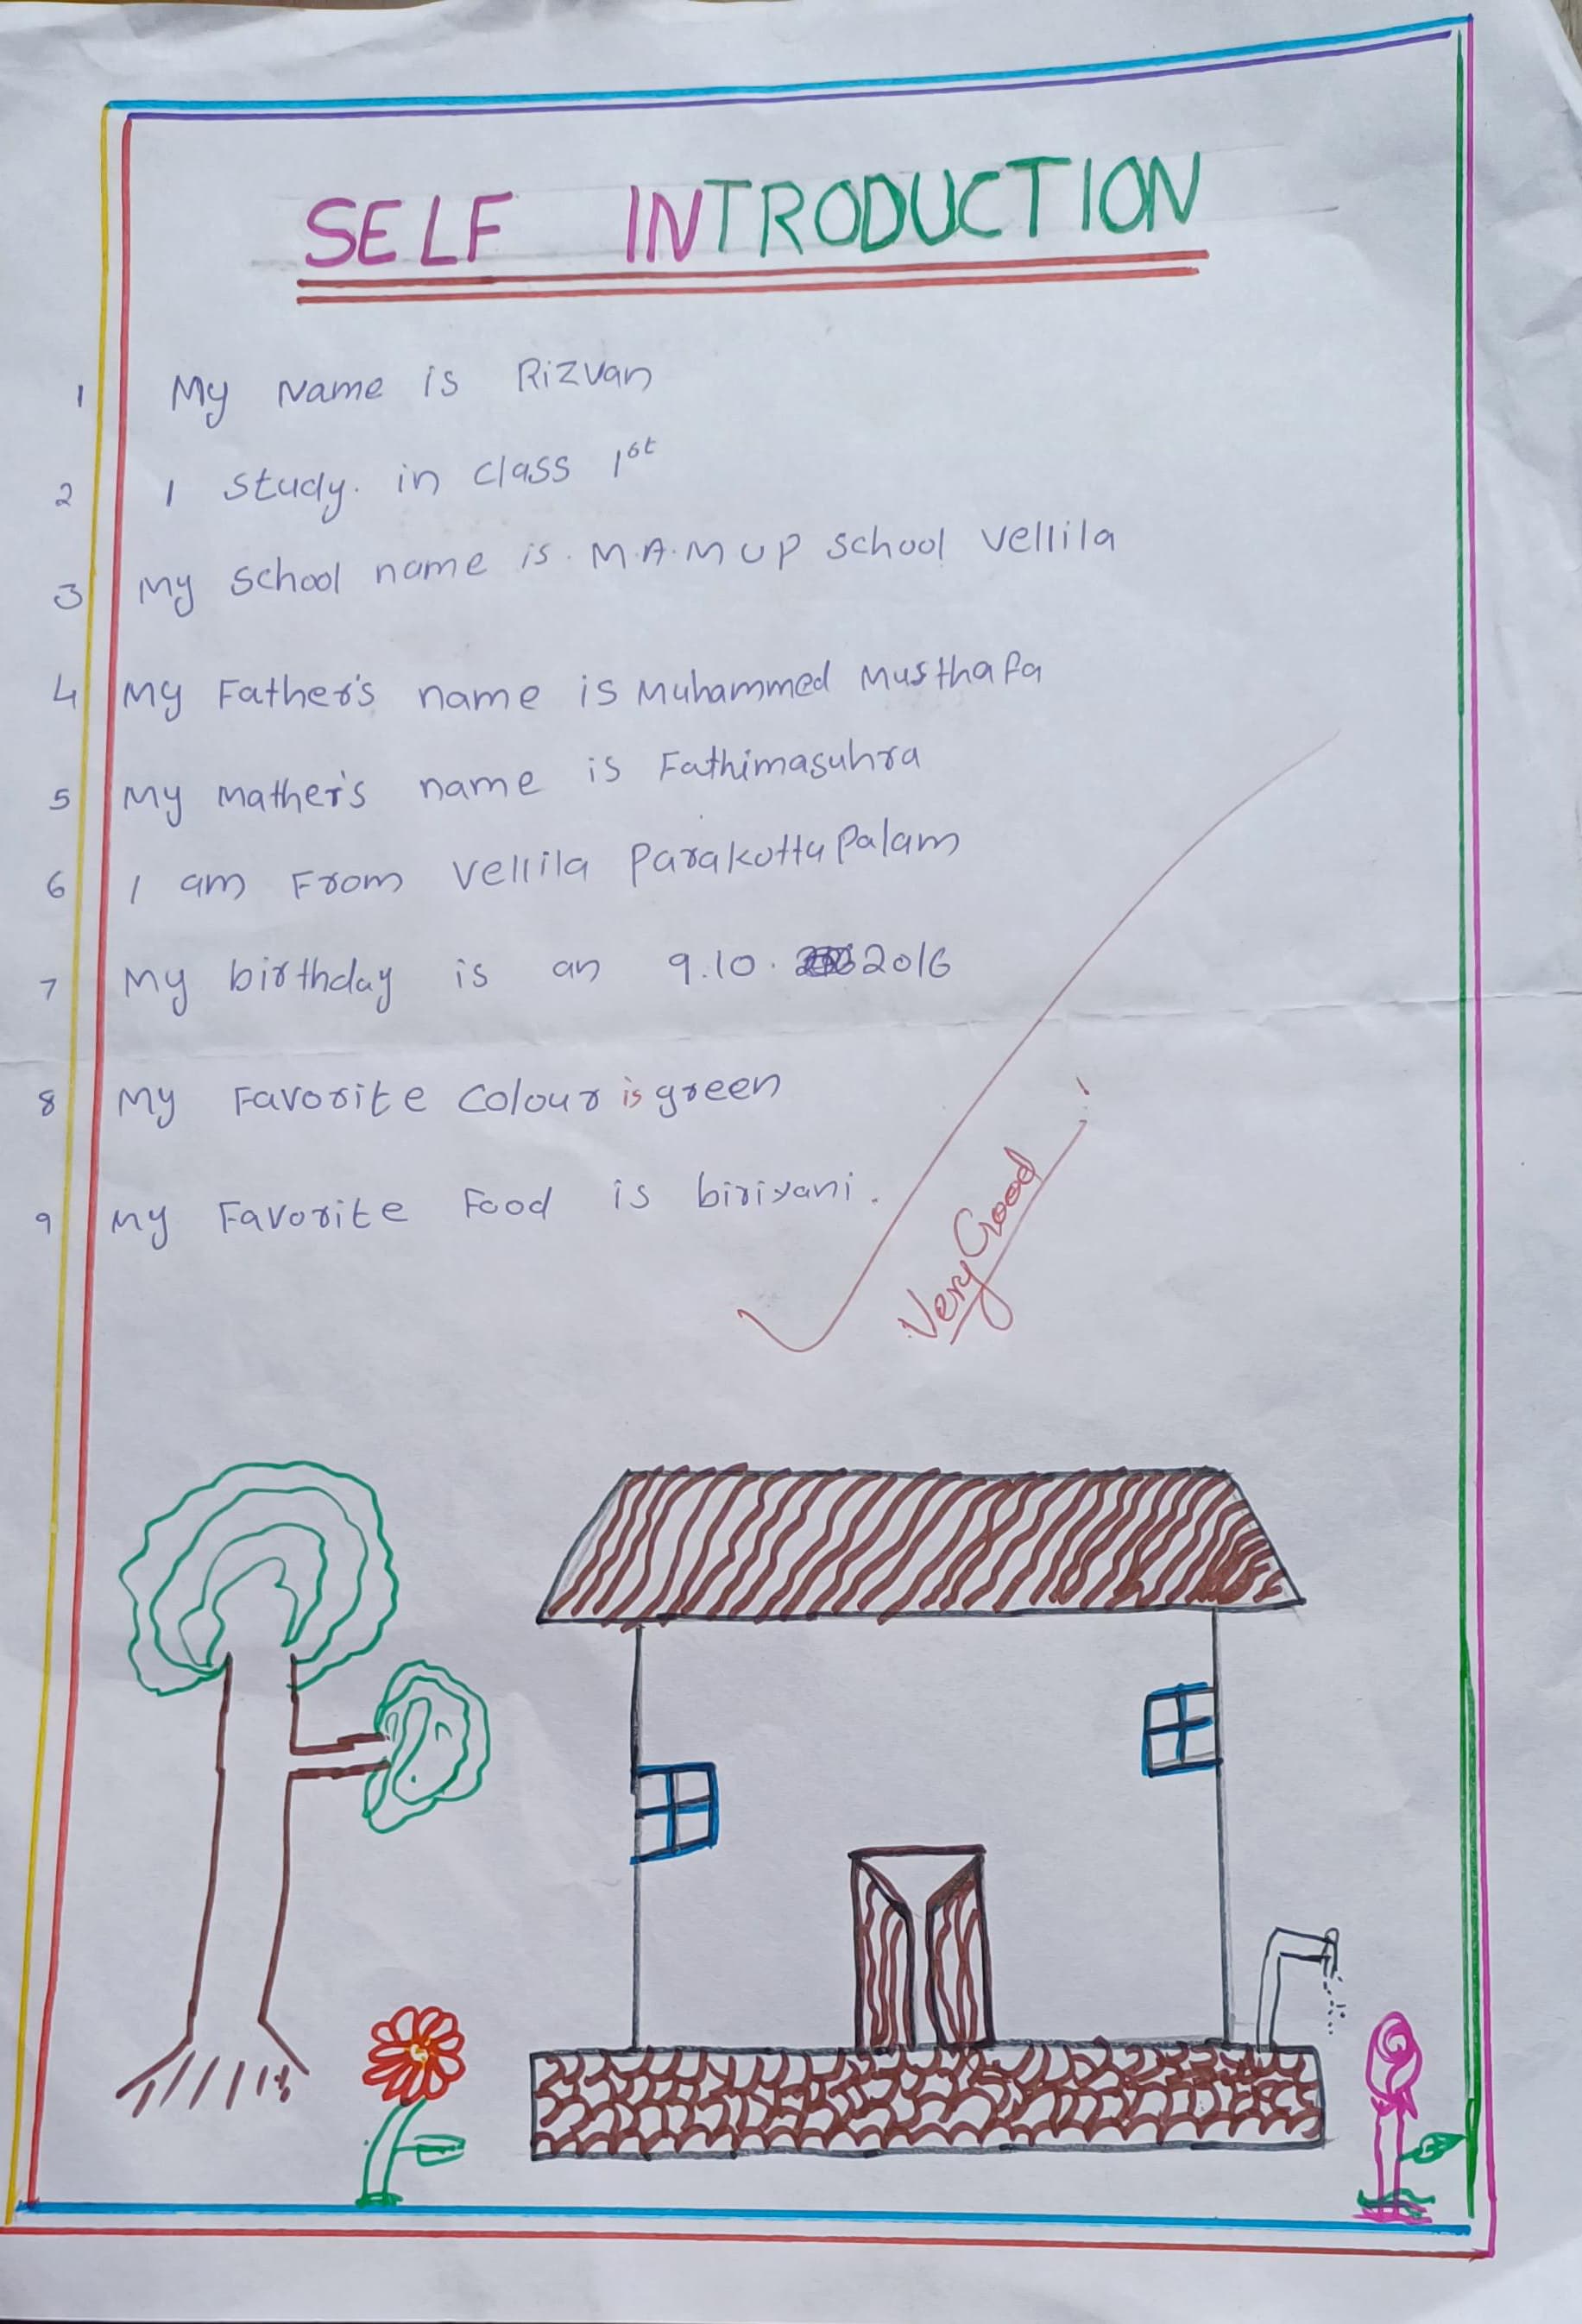 SELF INTRODUCTION
1 My Name is Rizvan
2 I study. in class 1st
3 My school name is. M.A.M UP school vellila
4 My Father's name is Muhammed Musthafa
5 My mather's name is Fathimasuhra
6 I am From vellila Parakottupalam
7 My birthday is an 9.10. 2016
8 My Favorite colour is green
9 My Favorite Food is biriyani.
Very Good !